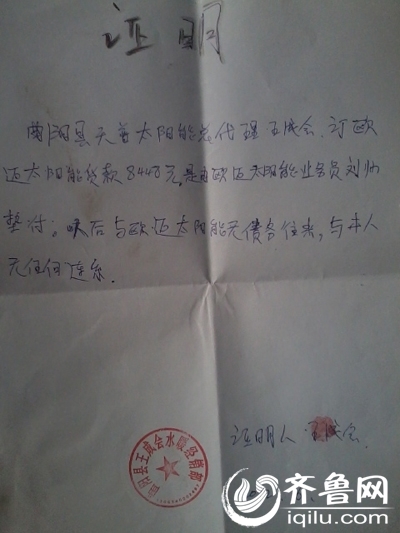 证明
曲阳县天普太阳能总代理王成会,订欧
还太阳能货款8440元,是由欧迈太阳能业务员刘帅
垫付;以后与欧迈太阳能无债务往来,与本人
无任何连系.
证明人 王成会.
曲阳县王成会水暖经销部
齐鲁网
iqilu.com